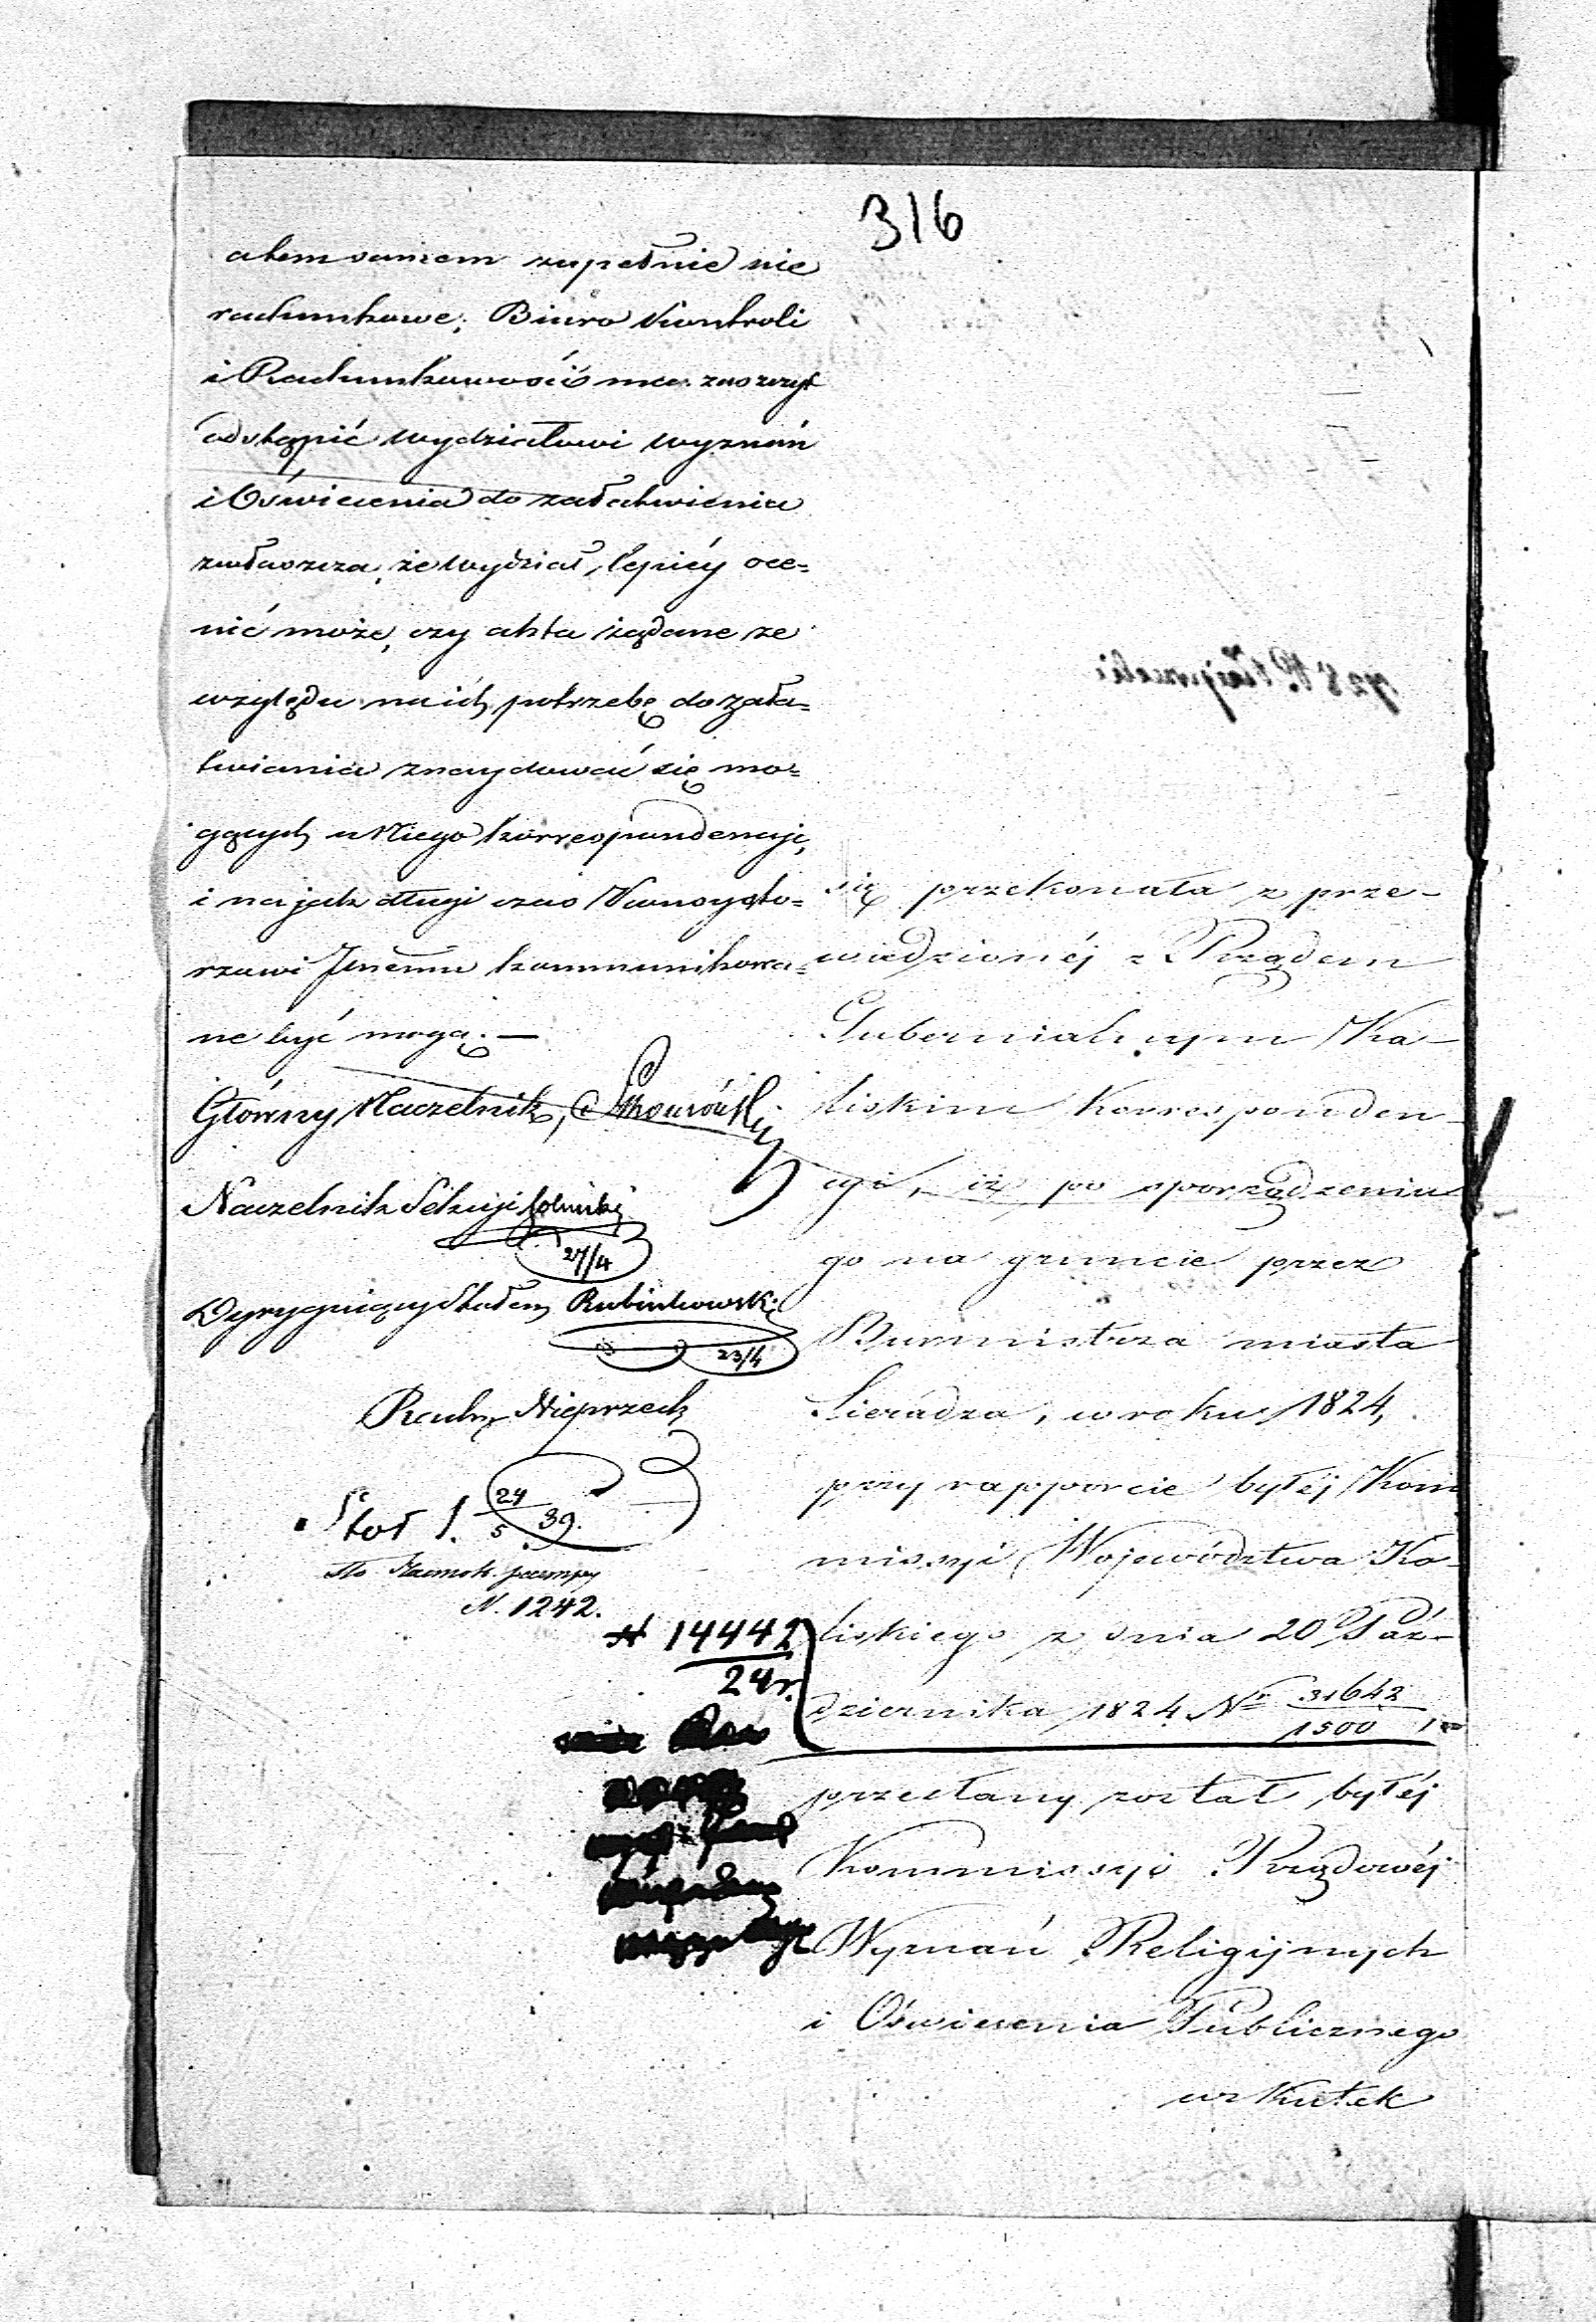 316
atem samem zupełnie nie
rachunkowe; Biuro Kontroli
i Rachunkowości ma zaszczyt
odstąpić Wydziałowi Wyznań
i Oświecenia do załatwienia
zwłaszcza, że Wydział, lepiéy oce=
nić może, czy akta żądane ze
względu na ich potrzebę do zała=
twiania znaydować się mo=
gących u Niego korrespondencyi,
i na jak długi czas
rzowi Jnemu kommunikowa=
ne być mogą. —
Główny Naczelnik,
Naczelnik Sekcyi
27/4
Dyrygujący Stołem Rubinkowski
23/4
Rachm. Nieprzech
Stoł 1. 24/5 39.
N. 1242.
N 14442
24 r.
się przekonała z prze-
wiedzionéj z Rządem
Gubernialnym Ka-
liskim Korresponden-
cyi, iż po sporządzeniu
go na gruncie przez
Burmistrza miasta
Sieradza, w roku 1824,
przy rapporcie byłéj Kom
missyi Województwa Ka-
liskiego z dnia 20 Paź-
dziernika 1824 Nr 31642/1500
przesłany został byłéj
Kommissyi Rządowéj
Wyznań Religijnych
i Oświecenia Publicznego
wskutek